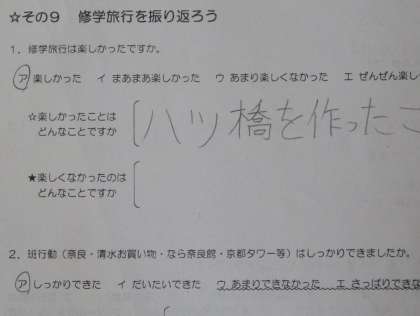 ☆その9 修学旅行を振り返ろう
1．修学旅行は楽しかったですか。
ア 楽しかった イ まあまあ楽しかった ウ あまり楽しくなかった エ ぜんぜん楽し
☆楽しかったことは
どんなことですか
八ツ橋を作ったこ
★楽しくなかったのは
どんなことですか
2．班行動（奈良・清水お買い物・なら奈良館・京都タワー等）はしっかりできましたか。
ア しっかりできた イ だいたいできた ウ あまりできなかった エ さっぱりできな